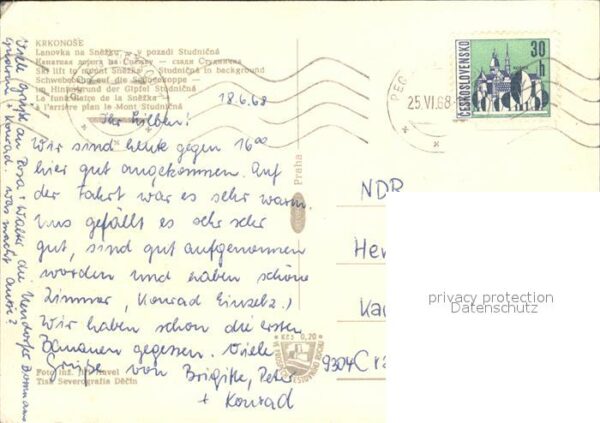 KRKONOŠE
Lanovka na Sněžku, v pozadí Studničná
Ski lift to mount Sněžka - Studničná in background
Schwebebahn auf die Schneekoppe -
im Hintergrund der Gipfel Studničná
La funiculaire de la Sněžka -
à l'arrière plan le Mont Studničná
18.6.68
Ihr Lieben!
Wir sind heute gegen 16⁰⁰
hier gut angekommen. Auf
der Fahrt war es sehr warm.
Uns gefällt es sehr sehr
gut, sind gut aufgenommen
worden und haben schöne
Zimmer, (Konrad Einzelz.)
Wir haben schon die ersten
Bananen gegessen. Viele
Grüße von Brigitte, Peter
+ Konrad
Foto Ing. Jiří Havel
Tisk Severografia Děčín
Viele Grüße an Rosa + Walter die
+ Konrad. was macht
Praha
Kčs 0,20
ČESKOSLOVENSKO
30
h
PEC
25.VI.68
NDR
9304
privacy protection
Datenschutz